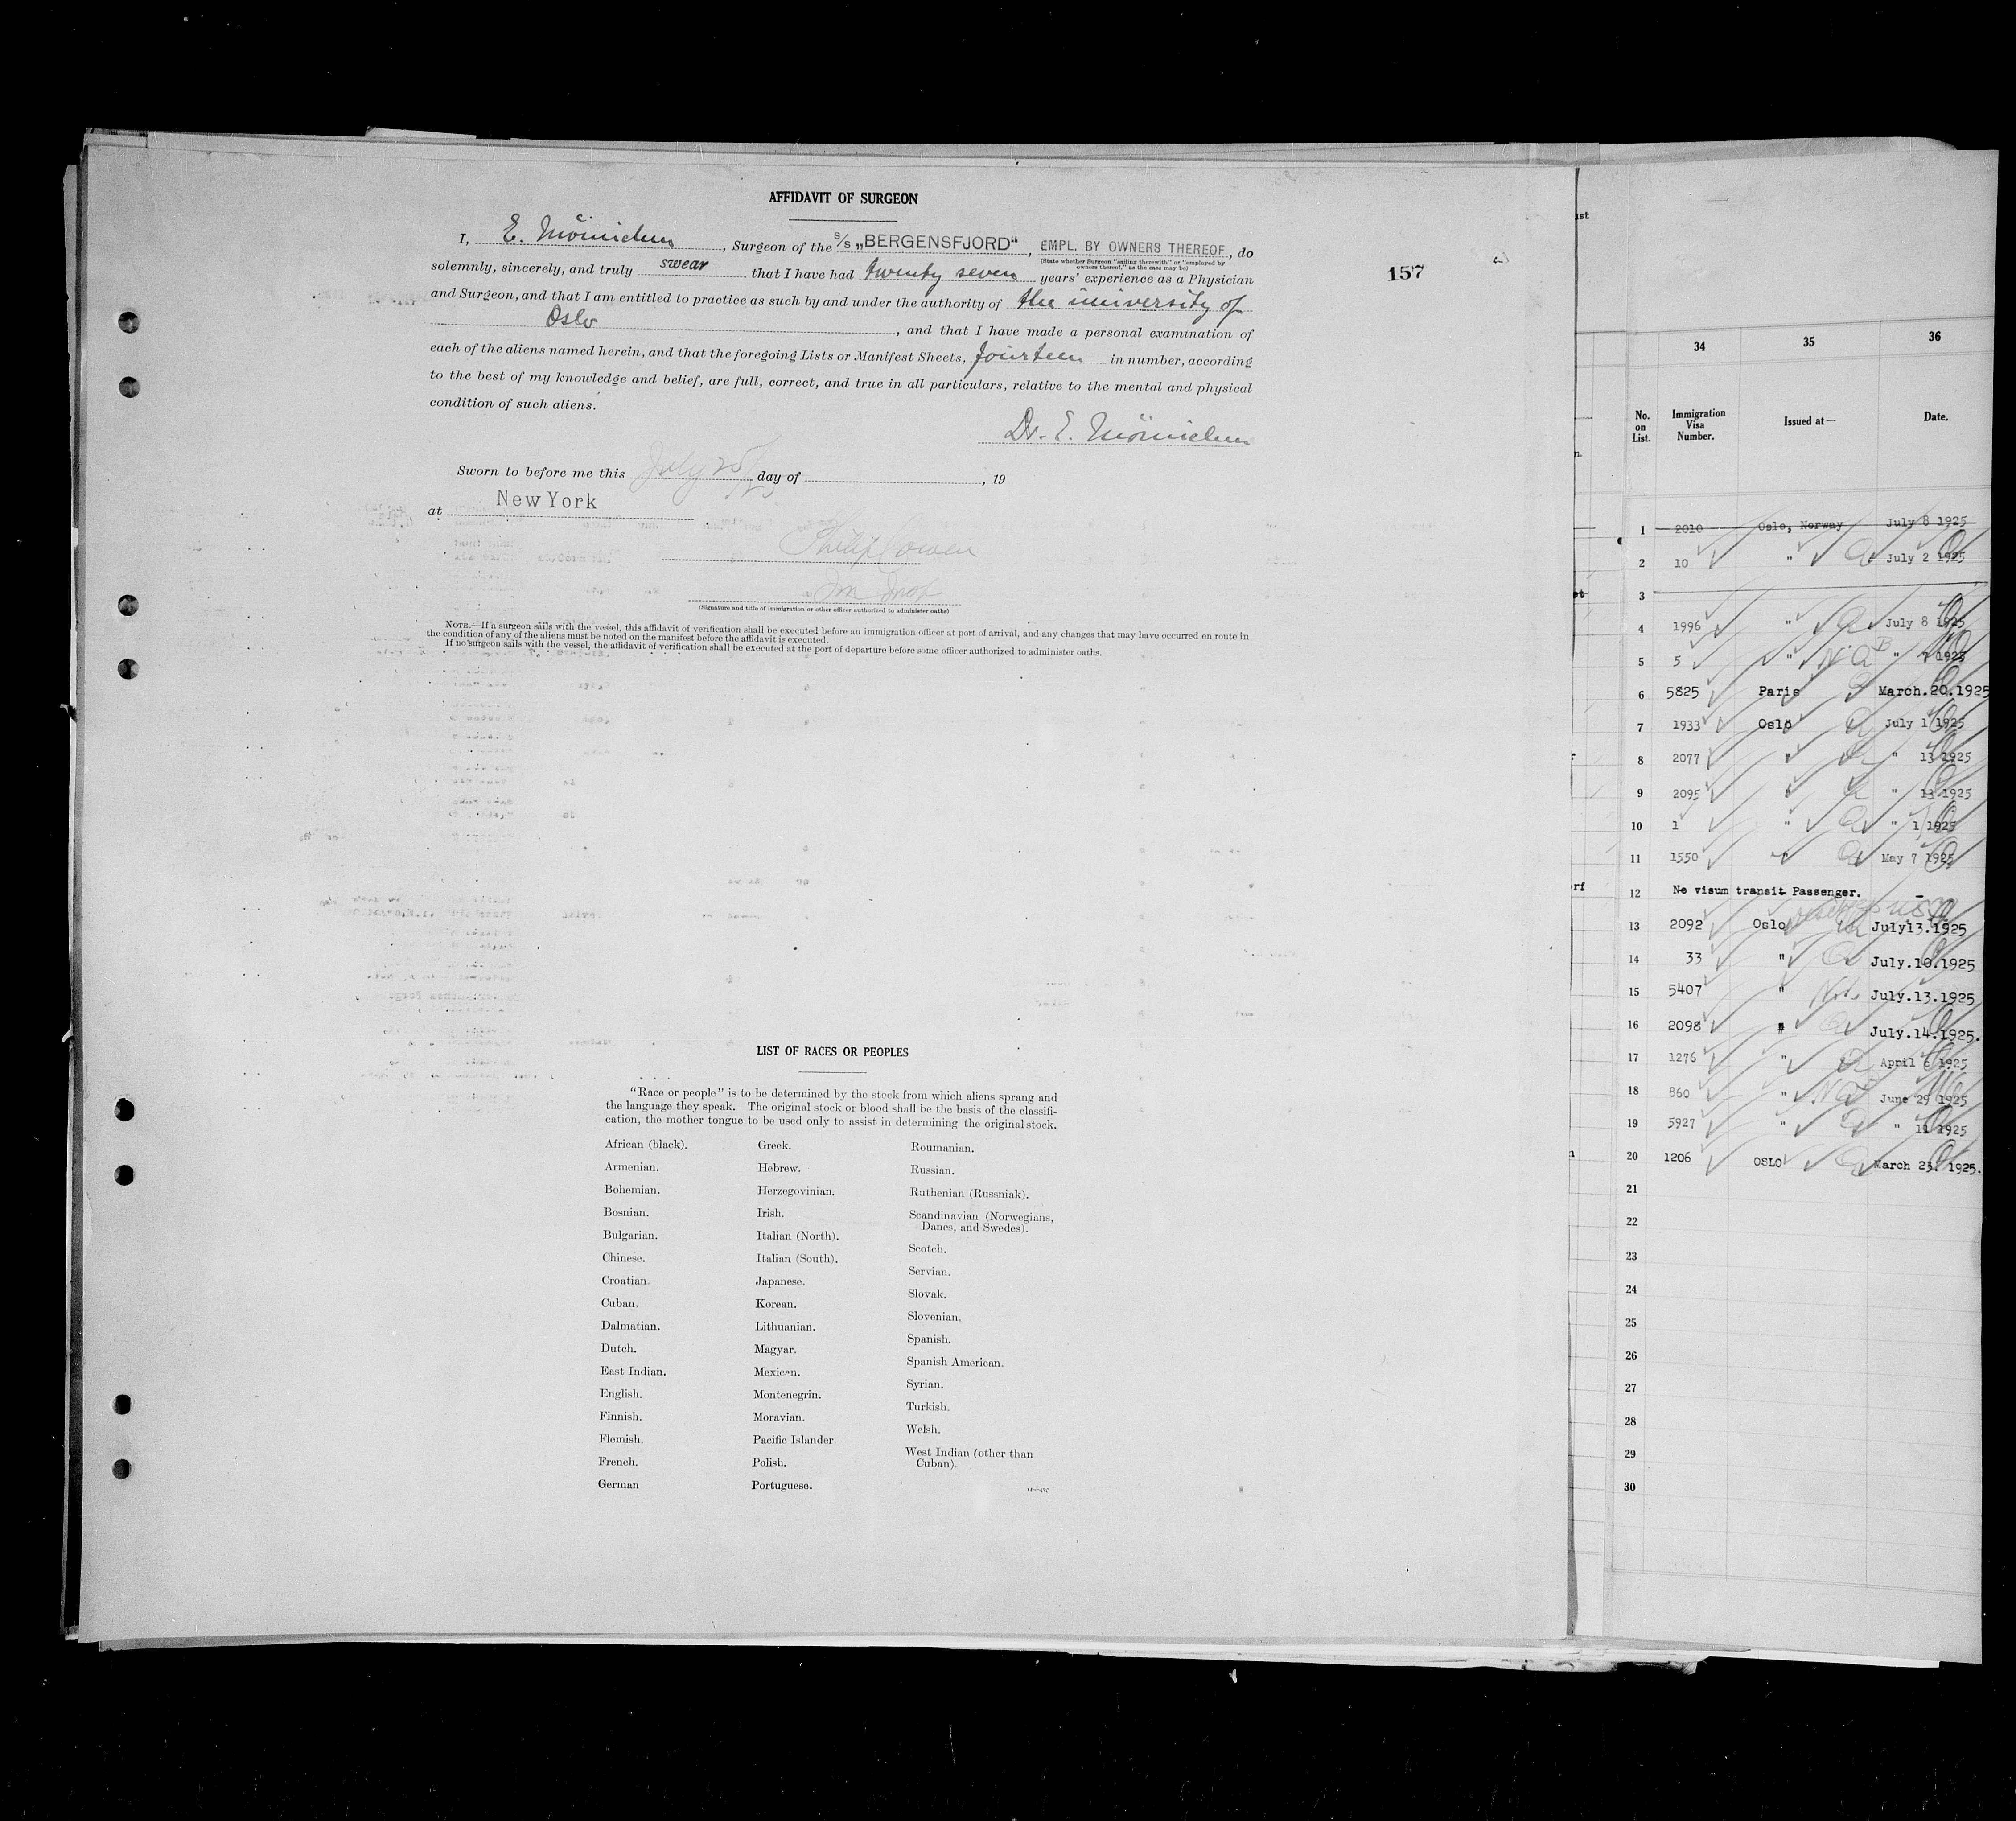 AFFIDAVIT OF SURGEON
I, E. Mönichen, Surgeon of the S/S „BERGENSFJORD“, EMPL. BY OWNERS THEREOF, do
(State whether Surgeon "sailing therewith" or "employed by owners thereof," as the case may be)
solemnly, sincerely, and truly swear that I have had twenty seven years' experience as a Physician
and Surgeon, and that I am entitled to practice as such by and under the authority of the university of
Oslo, and that I have made a personal examination of
each of the aliens named herein, and that the foregoing Lists or Manifest Sheets, fourteen in number, according
to the best of my knowledge and belief, are full, correct, and true in all particulars, relative to the mental and physical
condition of such aliens.
Dr. E. Mönichen
Sworn to before me this July 25/25 day of , 19
at New York
Philip Cowen
Imm Insp
(Signature and title of immigration or other officer authorized to administer oaths)
NOTE.—If a surgeon sails with the vessel, this affidavit of verification shall be executed before an immigration officer at port of arrival, and any changes that may have occurred en route in
the condition of any of the aliens must be noted on the manifest before the affidavit is executed.
If no surgeon sails with the vessel, the affidavit of verification shall be executed at the port of departure before some officer authorized to administer oaths.
157
LIST OF RACES OR PEOPLES
"Race or people" is to be determined by the stock from which aliens sprang and
the language they speak. The original stock or blood shall be the basis of the classifi-
cation, the mother tongue to be used only to assist in determining the original stock.
African (black).
Armenian.
Bohemian.
Bosnian.
Bulgarian.
Chinese.
Croatian.
Cuban.
Dalmatian.
Dutch.
East Indian.
English.
Finnish.
Flemish.
French.
German
Greek.
Hebrew.
Herzegovinian.
Irish.
Italian (North).
Italian (South).
Japanese.
Korean.
Lithuanian.
Magyar.
Mexican.
Montenegrin.
Moravian.
Pacific Islander
Polish.
Portuguese.
Roumanian.
Russian.
Ruthenian (Russniak).
Scandinavian (Norwegians,
Danes, and Swedes).
Scotch.
Servian.
Slovak.
Slovenian.
Spanish.
Spanish American.
Syrian.
Turkish.
Welsh.
West Indian (other than
Cuban).
34 35 36
No. on List. Immigration Visa Number. Issued at— Date.
1 2010 Oslo, Norway July 8 1925
2 10 " July 2 1925
3
4 1996 " July 8 1925
5 5 " " 7 1925
6 5825 Paris March.20.1925
7 1933 Oslo July 1 1925
8 2077 " " 13 1925
9 2095 " " 13 1925
10 1 " " 1 1925
11 1550 " May 7 1925
12 No visum transit Passenger.
13 2092 Oslo July13.1925
14 33 " July.10.1925
15 5407 " July.13.1925
16 2098 " July.14.1925.
17 1276 " April 6 1925
18 860 " June 29 1925
19 5927 " " 11 1925
20 1206 OSLO March 23. 1925.
21
22
23
24
25
26
27
28
29
30